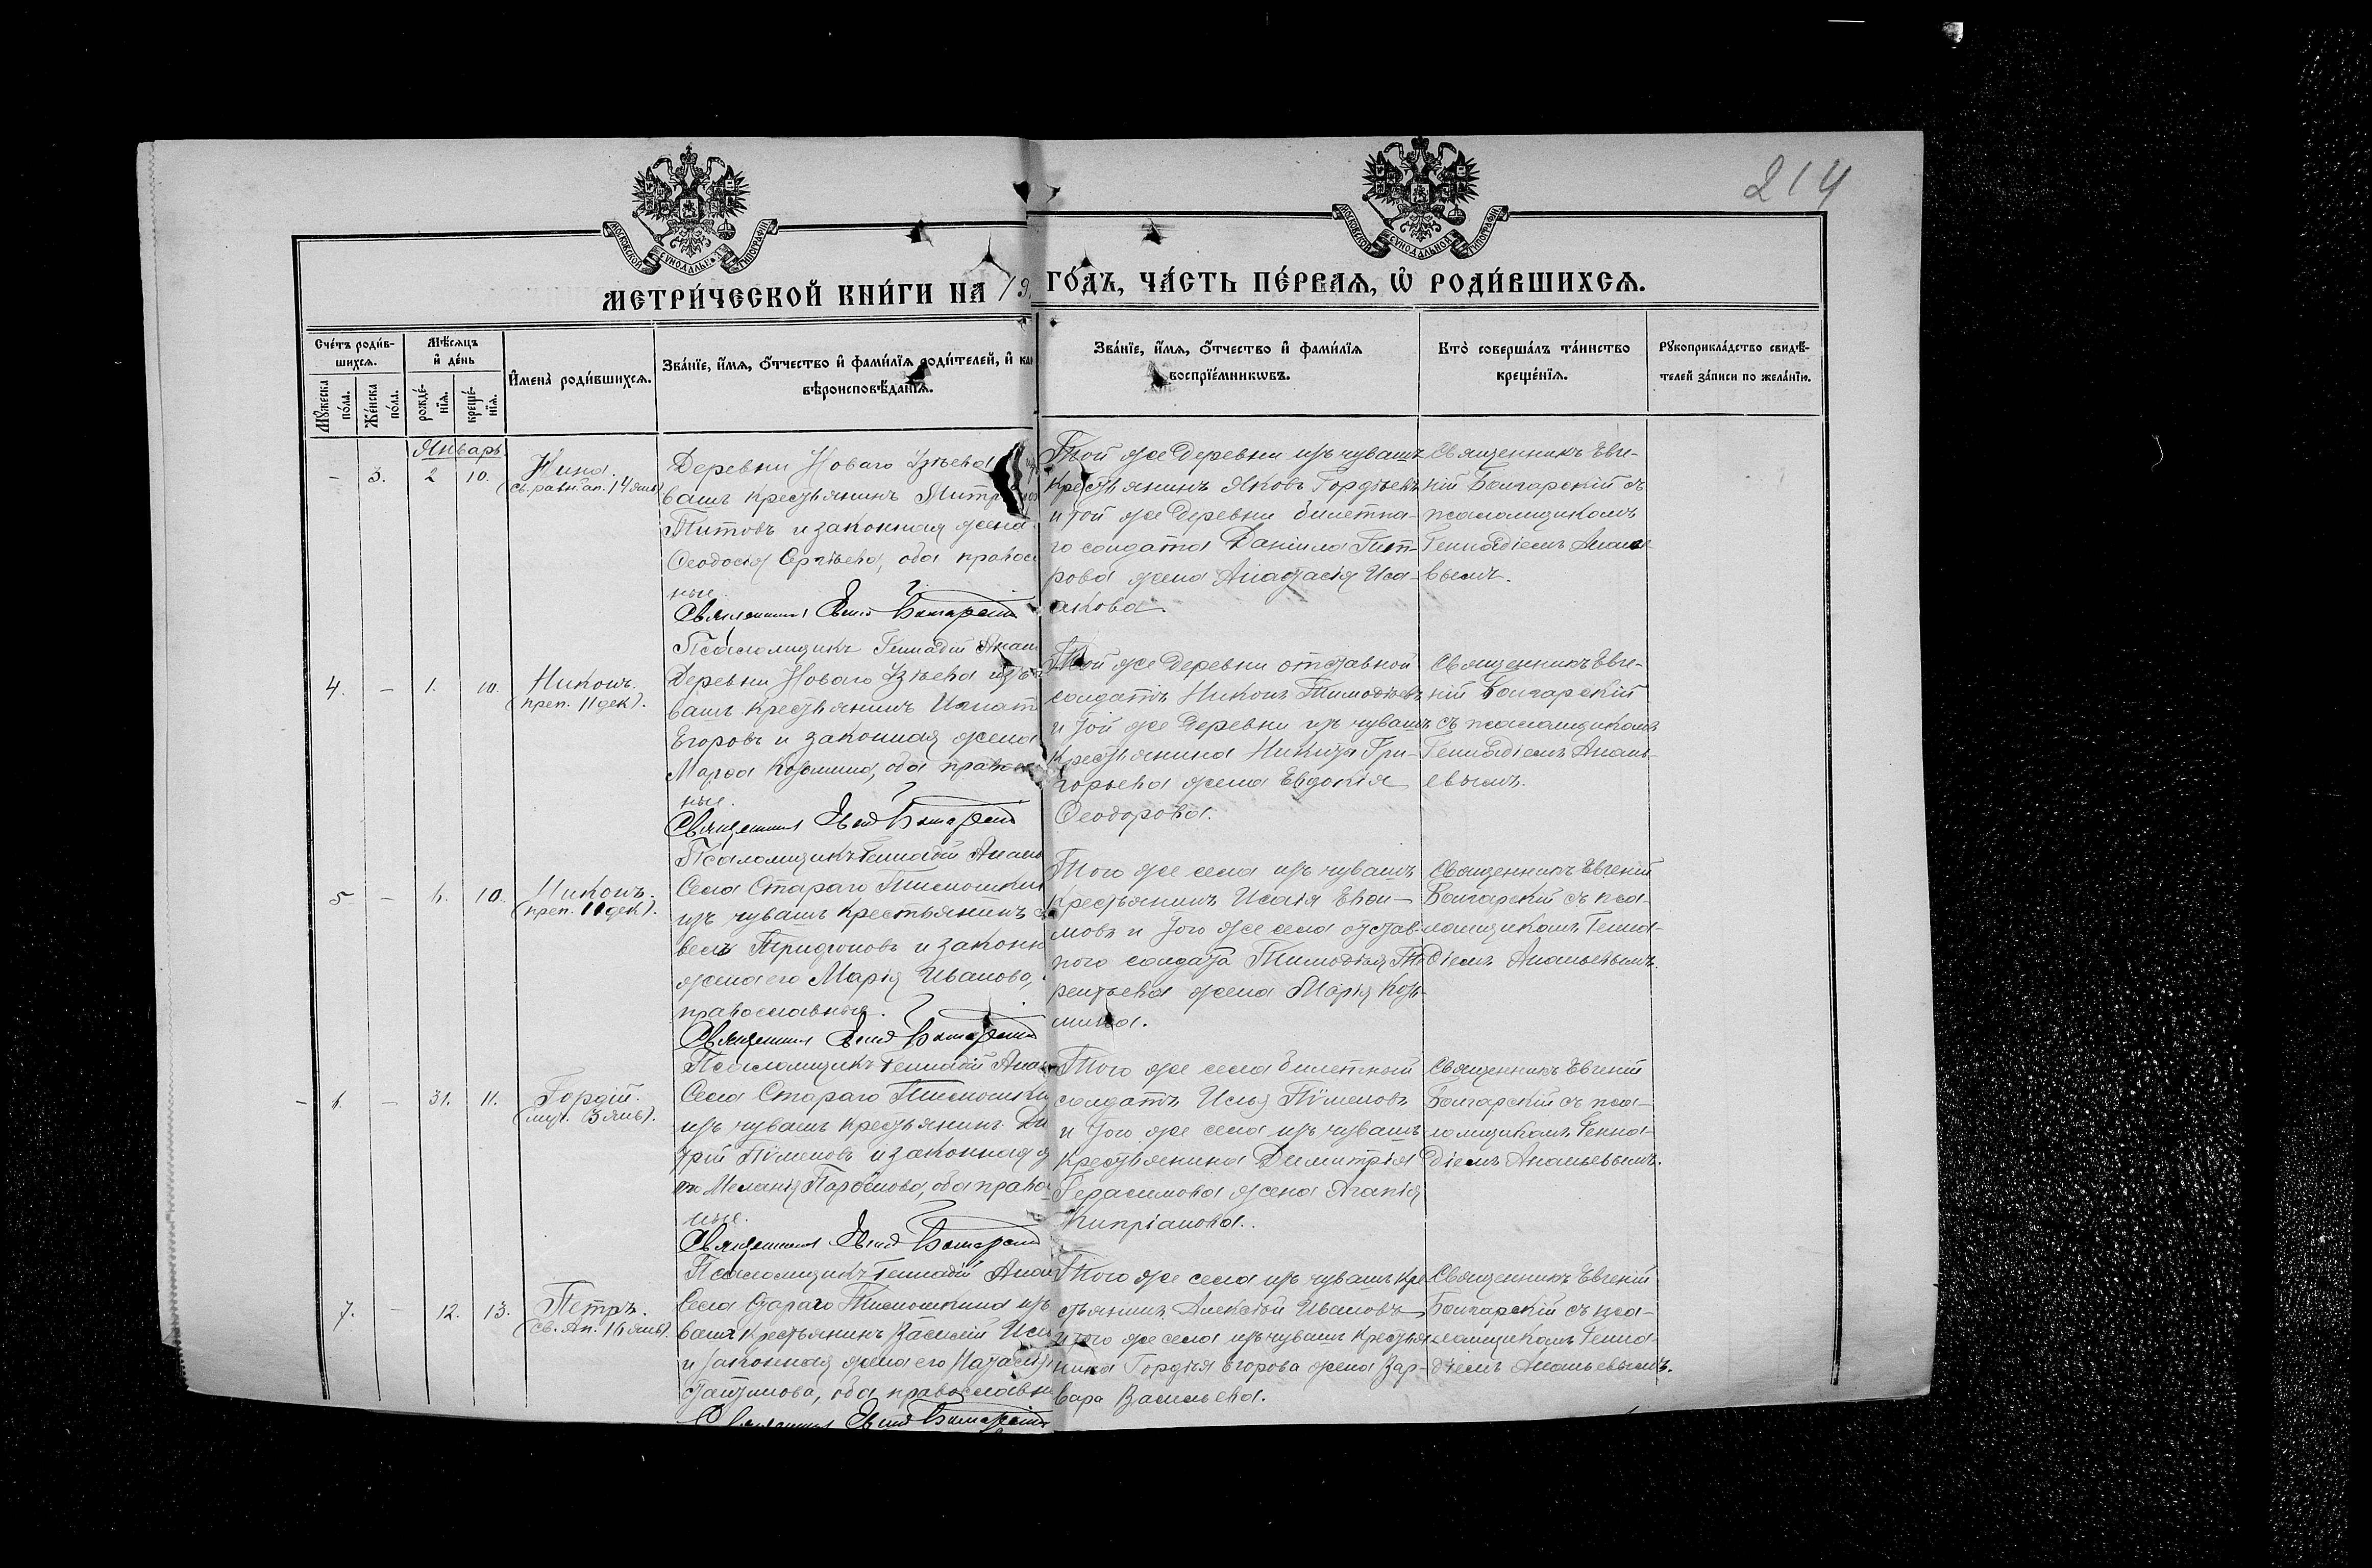 214
МОСКОВСКОЙ СУНОДАЛЬНОЙ ТИПОГРАФІИ
МОСКОВСКОЙ СУНОДАЛЬНОЙ ТИПОГРАФІИ
МЕТРИ́ЧЕСКОЙ КНИ́ГИ НА 19
ГО́ДЪ, ЧА́СТЬ ПЕ́РВАѦ, Ѡ҆ РОДИ́ВШИХСѦ.
Сче́тъ роди́в-
шихсѧ.
Мꙋ́жеска по́ла.
Же́нска по́ла.
Мѣ́сѧцъ
и҆ де́нь
рожде́-нїѧ.
креще́-нїѧ.
И҆мена̀ роди́вшихсѧ.
Зва́нїе, и҆́мѧ, ѻ҆́тчество и҆ фами́лїѧ роди́телей, и҆ как
вѣроисповѣ́данїѧ.
Зва́нїе, и҆́мѧ, ѻ҆́тчество и҆ фами́лїѧ
воспрїе́мникѡвъ.
Кто̀ соверша́лъ та́инство
креще́нїѧ.
Рꙋкоприкла́дство свидѣ́-
телей за́писи по жела́нїю.
Январь
- 3. 2 10. Нина.
(св. равн. ап. 14 янв)
Деревни Новаго Узѣева
вашъ крестьянинъ
Титовъ и законная жена
Ѳеодосія Сергѣева, оба правос
ные.
Священникъ Евгеній Болгарскій
Псаломщикъ Геннадій Анан
Той же деревни изъ чувашъ
крестьянинъ Яковъ Гордѣевъ
и той же деревни билетна-
го солдата Даніила Пет-
рова жена Анастасія Иса-
акова.
Священникъ Евге-
ній Болгарскій съ
псаломщикомъ
Геннадіемъ Ананье-
вымъ.
4. - 1. 10. Никонъ.
(преп. 11 дек).
Деревни Новаго Узѣева изъ ч
вашъ крестьянинъ Игнат
Егоровъ и законная жена
Марѳа Козьмина, оба правосл
ные.
Священникъ Евгеній Болгарскій
Псаломщикъ Геннадій Анань
Той же деревни отставной
солдатъ Никонъ Тимоѳѣевъ
и той же деревни изъ чувашъ
крестьянина Никиты Гри-
горьева жена Евдокія
Ѳеодорова.
Священникъ Евге-
ній Болгарскій
съ псаломщикомъ
Геннадіемъ Анань-
евымъ.
5 - 6. 10. Никонъ.
(преп. 11 дек).
Села Стараго Тимошкин
изъ чувашъ крестьянинъ
велъ Трифоновъ и законн
жена его Марія Иванова,
православные.
Священникъ Евгеній Болгарскій
Псаломщикъ Геннадій Анань
Того же села изъ чувашъ
крестьянинъ Исаія
мовъ и того же села отстав-
ного солдата Тимоѳея Те
рентьева жена Марія Козь-
мина.
Священникъ Евгеній
Болгарскій съ пса-
ломщикомъ Генна-
діемъ Ананьевымъ.
- 6. - 31. 11. Гордій.
(муч. 3 янв).
Села Стараго Тимошки
изъ чувашъ крестьянинъ Ди
трій Пименовъ и законная ж
его Меланія Парѳенова, оба право
ные.
Священникъ Евгеній Болгарскій
Псаломщикъ Геннадій Анан
Того же села билетный
солдатъ Илья Пименовъ
и того же села изъ чувашъ
крестьянина Димитрія
Герасимова жена Агапія
Кипріанова.
Священникъ Евгеній
Болгарскій съ пса-
ломщикомъ Генна-
діемъ Ананьевымъ.
7. - 12. 13. Петръ.
(св. Ап. 16 янв).
Села Стараго Тимошкина изъ
вашъ крестьянинъ Василій
и законная жена его Наталія
оба православн
Священникъ Евгеній Болгарскій
Того же села изъ чувашъ кре
стьянинъ Алексѣй Ивановъ
и того же села изъ чувашъ крестья
нина Гордѣя Егорова жена Вар-
вара Васильева.
Священникъ Евгеній
Болгарскій съ пса-
ломщикомъ Генна-
діемъ Ананьевымъ.